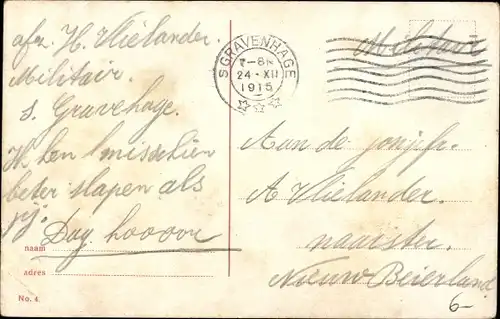 afz. H. Vlielander.
Militair.
s. Gravehage.
Ik ben / misschien
beter slapen als
jij.
Dag hoooor
naam
adres
No. 4.
'S GRAVENHAGE
7-8N
24·XII
1915
Militair
Aan de jonjfr.
A Vlielander.
naaister.
Nieuw Beierland
6-